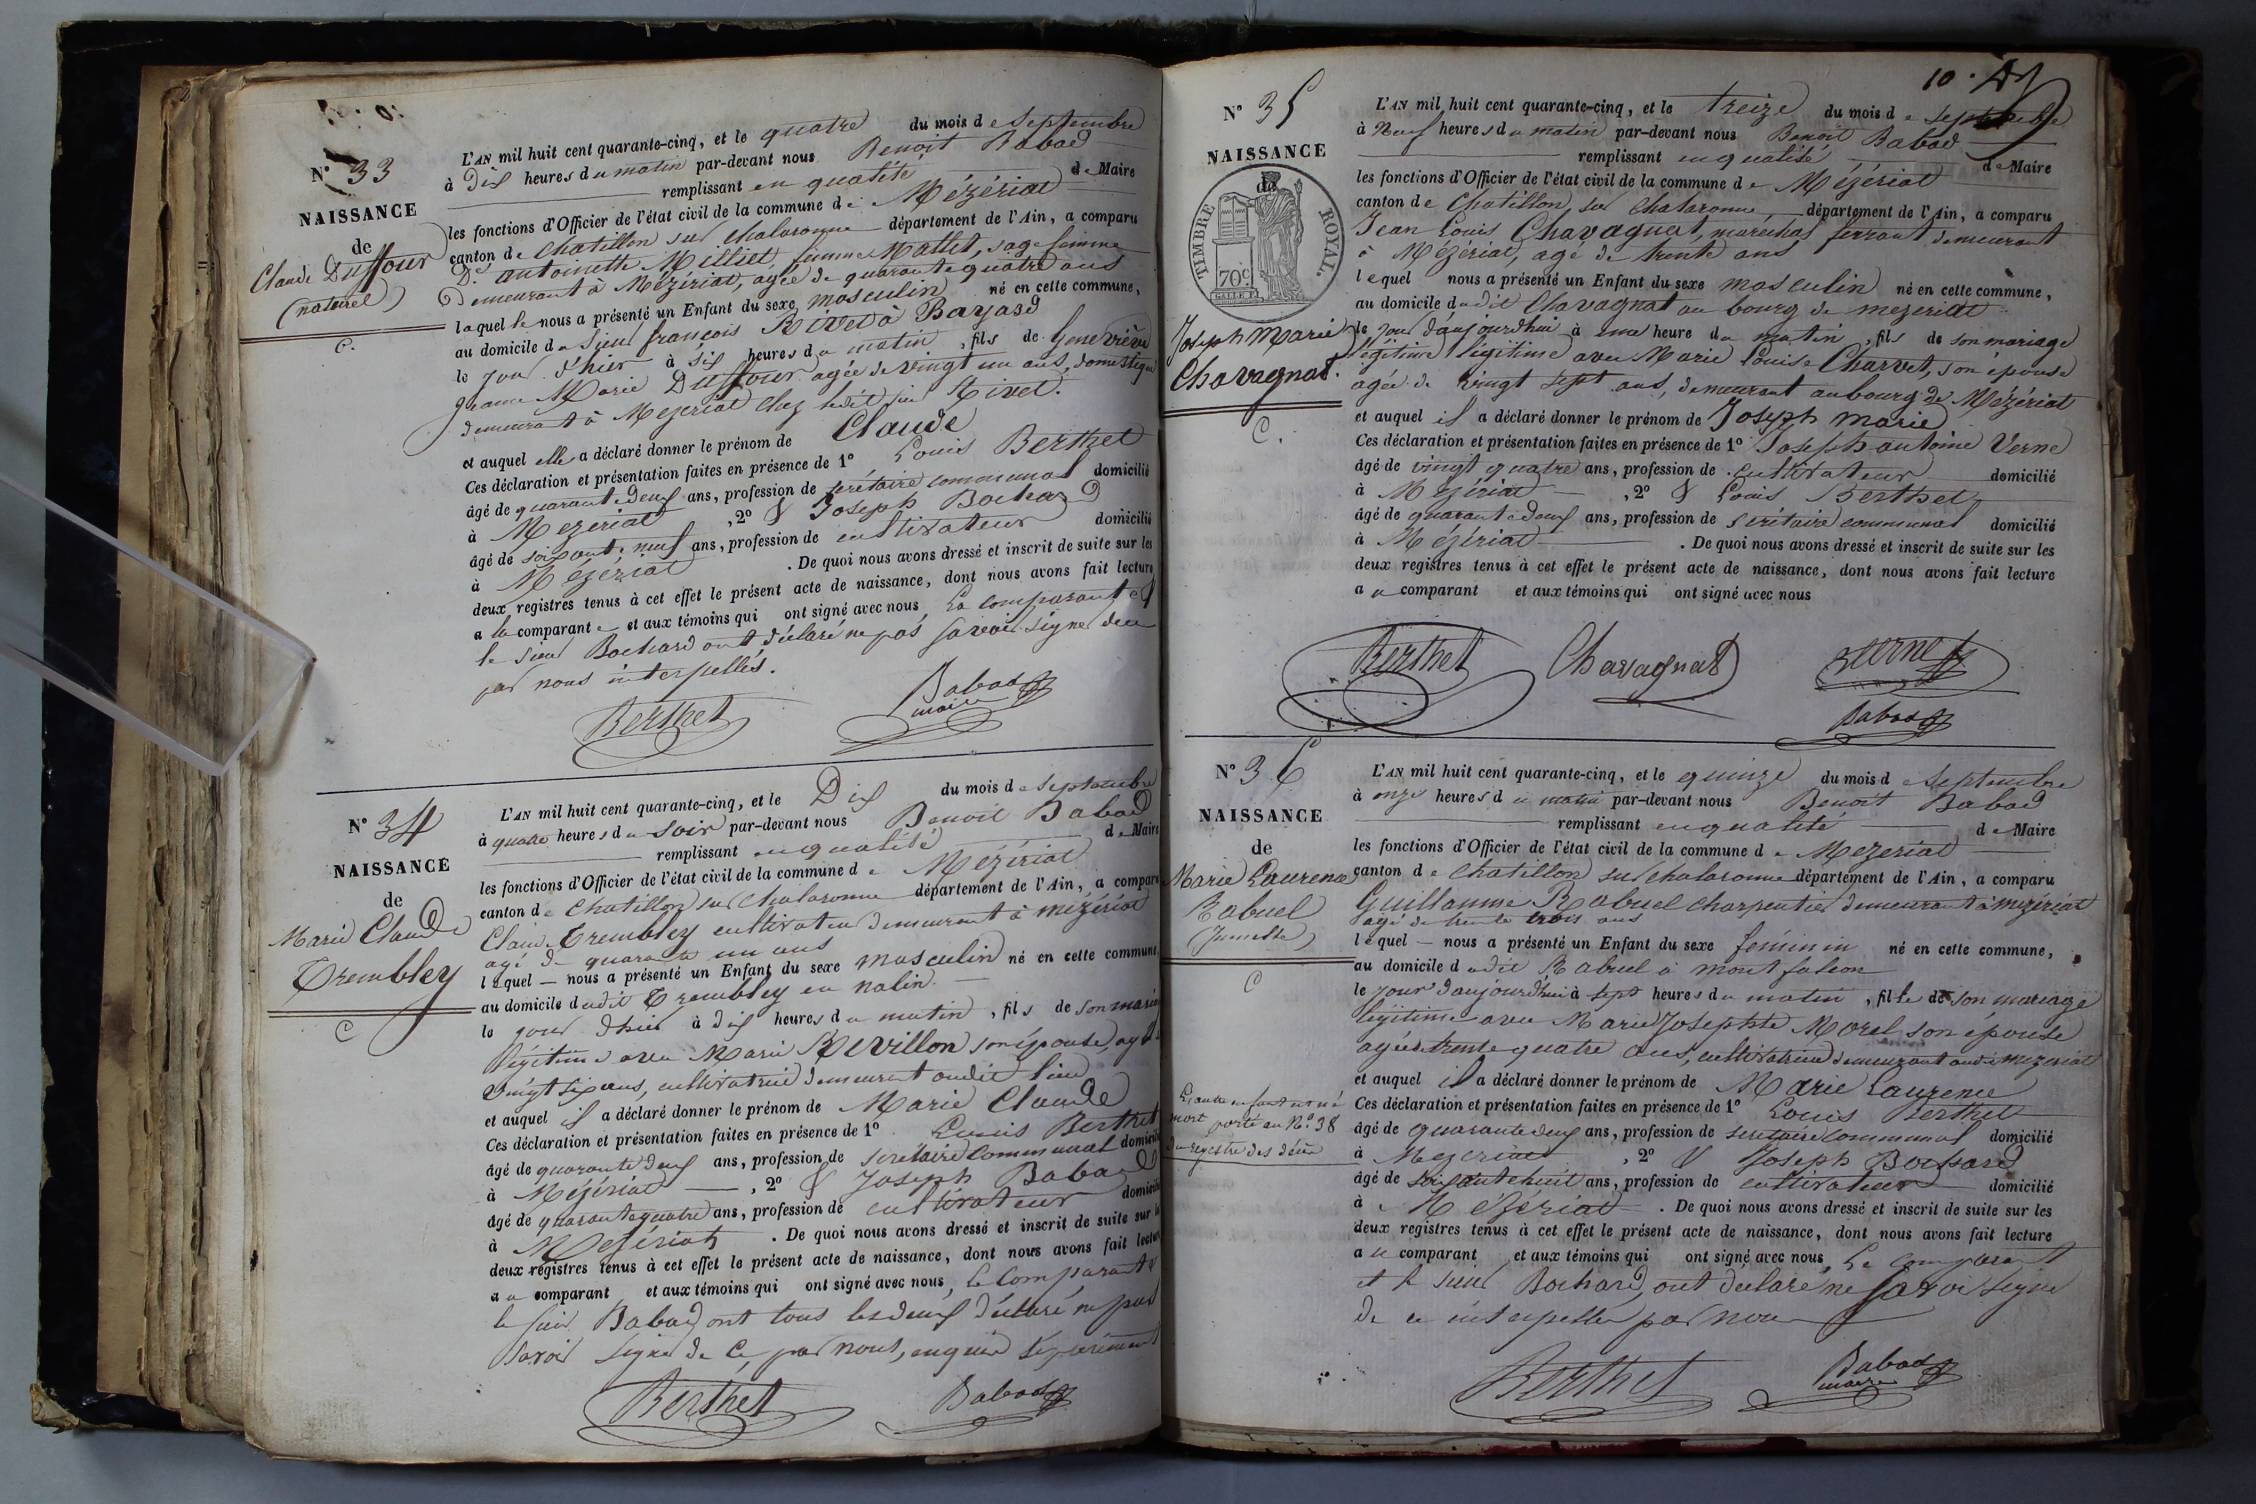 N° 33
NAISSANCE
de
Claude Duffour
(naturel)
C.
L'AN mil huit cent quarante-cinq, et le quatre du mois de Septembre
à Dix heures du matin par-devant nous Benoit Babad
remplissant en qualité de Maire
les fonctions d'Officier de l'état civil de la commune de Mézériat
canton de Chatillon sur Chalaronne département de l'Ain, a comparu
De antoinette Milliet femme Mallet, sage femme
Demeurant à Mézériat, agée de quarante quatre ans
laquelle nous a présenté un Enfant du sexe masculin né en cette commune,
au domicile du Sieur françois Rivet à Bayard
le jour d'hier à six heures du matin, fils de Geneviève
Marie Duffour agée de vingt un ans, domestique
demeurant à Mezeriat chez ledit sieur Rivet.
et auquel elle a déclaré donner le prénom de Claude
Ces déclaration et présentation faites en présence de 1° Louis Berthet
âgé de quarante deux ans, profession de secrétaire communal domicilié
à Mezeriat, 2° & Joseph Bochard
âgé de soixante neuf ans, profession de cultivateur domicilié
à Mézériat. De quoi nous avons dressé et inscrit de suite sur les
deux registres tenus à cet effet le présent acte de naissance, dont nous avons fait lecture
a la comparante et aux témoins qui ont signé avec nous, La comparante &
le sieur Bochard ont déclaré ne pas savoir signer de ce
par nous interpellés.
Berthet
Babad
maire
N° 34
NAISSANCE
de
Marie Claude
Trembley
C
L'AN mil huit cent quarante-cinq, et le Dix du mois de Septembre
à quatre heures du soir par-devant nous Benoit Babad
remplissant en qualité de Maire
les fonctions d'Officier de l'état civil de la commune de Mézériat
canton de Chatillon sur Chalaronne département de l'Ain, a comparu
Claude Trembley cultivateur demeurant à mézériat
agé de quarante un ans
lequel nous a présenté un Enfant du sexe masculin né en cette commune
au domicile dudit Trembley en
le jour d'hier à dix heures du matin, fils de son mariage
légitime avec Marie Revillon son épouse, agée
vingt six ans, cultivatrice demeurant audit lieu
et auquel il a déclaré donner le prénom de Marie Claude
Ces déclaration et présentation faites en présence de 1° Louis Berthet
âgé de quarante deux ans, profession de secrétaire communal domicilié
à Mézériat, 2° & Joseph Babad
âgé de quarante quatre ans, profession de cultivateur domicilié
à Mézériat. De quoi nous avons dressé et inscrit de suite sur les
deux registres tenus à cet effet le présent acte de naissance, dont nous avons fait lecture
au comparant et aux témoins qui ont signé avec nous, Le comparant &
le sieur Babad ont tous les deux déclaré ne pas
savoir signer de ce par nous, enquis séparément
Berthet
Babad
10.
N° 35
NAISSANCE
de
TIMBRE ROYAL.
70c.
Joseph Marie
Chavagnat.
C.
L'AN mil huit cent quarante-cinq, et le treize du mois de septembre
à Neuf heures du matin par-devant nous Benoit Babad
remplissant en qualité de Maire
les fonctions d'Officier de l'état civil de la commune de Mézériat
canton de Chatillon sur Chalaronne, département de l'Ain, a comparu
Jean Louis Chavagnat, maréchal ferrant demeurant
à Mézériat, agé de trente ans
lequel nous a présenté un Enfant du sexe masculin né en cette commune,
au domicile dudit Chavagnat au bourg de mezeriat
le jour d'aujourdhui à une heure du matin, fils de son mariage
légitime légitime avec Marie Louise Charvet, son épouse
agée de vingt sept ans, demeurant au bourg de Mézériat
et auquel il a déclaré donner le prénom de Joseph Marie
Ces déclaration et présentation faites en présence de 1° Joseph antoine Verne
âgé de vingt quatre ans, profession de cultivateur domicilié
à Mézériat, 2° & Louis Berthet
âgé de quarante deux ans, profession de secrétaire communal domicilié
à Mézériat. De quoi nous avons dressé et inscrit de suite sur les
deux registres tenus à cet effet le présent acte de naissance, dont nous avons fait lecture
au comparant et aux témoins qui ont signé avec nous
Berthet Chavagnat Verne
Babad
N° 36
NAISSANCE
de
Marie Laurence
Rabuel
(Jumelle)
C
L'autre enfant est né
mort porté au N° 38
du registre des décès
L'AN mil huit cent quarante-cinq, et le quinze du mois de Septembre
à onze heures du matin par-devant nous Benoit Babad
remplissant en qualité de Maire
les fonctions d'Officier de l'état civil de la commune de Mezeriat
canton de Chatillon sur Chalaronne département de l'Ain, a comparu
Guillaume Rabuel charpentier demeurant à mezériat
agé de trente trois ans
lequel nous a présenté un Enfant du sexe feminin né en cette commune,
au domicile dudit Rabuel à montfalcon
le jour d'aujourd'hui à sept heures du matin, fille de son mariage
légitime avec Marie Josephte Morel son épouse
agée trente quatre ans, cultivatrice demeurant audit mezeriat
et auquel il a déclaré donner le prénom de Marie Laurence
Ces déclaration et présentation faites en présence de 1° Louis Berthet
âgé de quarante deux ans, profession de secrétaire communal domicilié
à Mezeriat, 2° & Joseph Bochard
âgé de soixante huit ans, profession de cultivateur domicilié
à Mézériat. De quoi nous avons dressé et inscrit de suite sur les
deux registres tenus à cet effet le présent acte de naissance, dont nous avons fait lecture
au comparant et aux témoins qui ont signé avec nous, Le comparant
et le sieur Bochard, ont déclaré ne savoir signer
de ce interpellés par nous
Berthet
Babad
maire